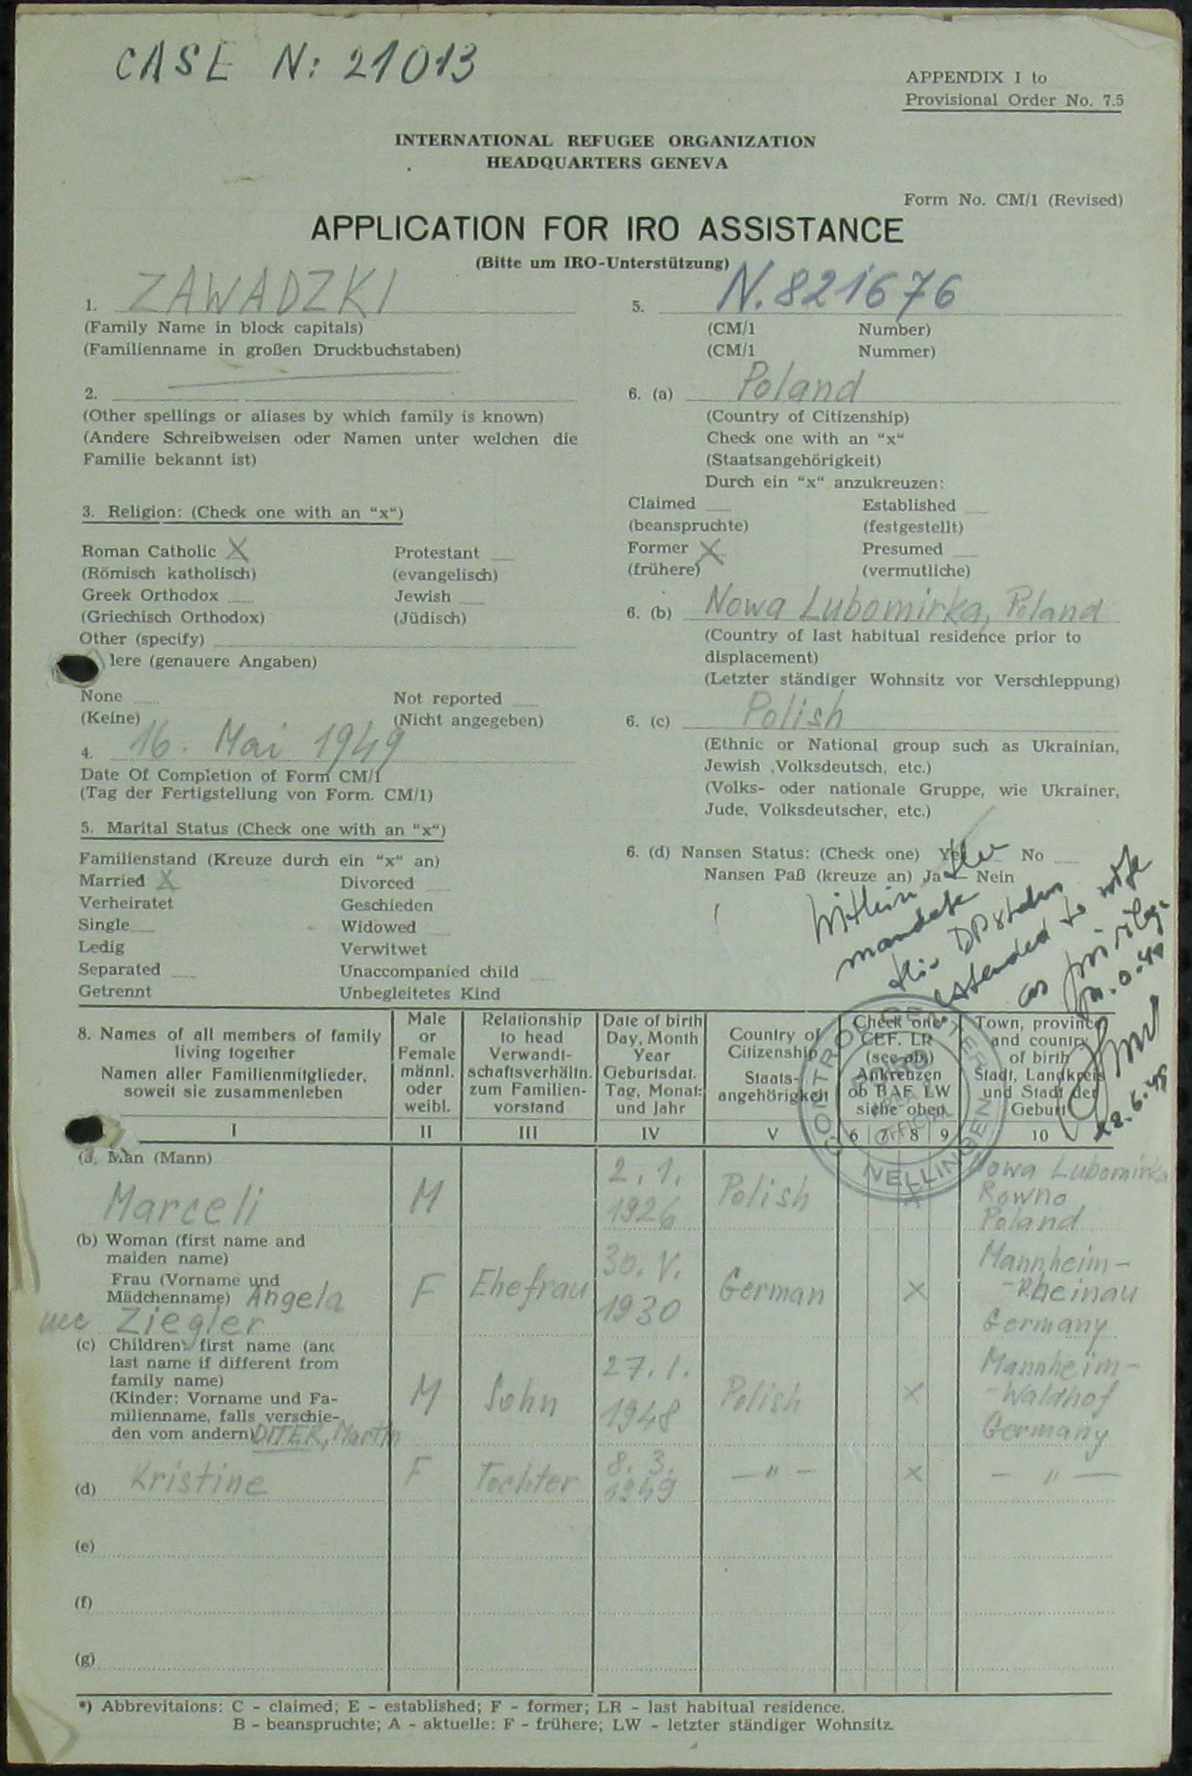 CASE N: 21013
APPENDIX I to
Provisional Order No. 7.5
INTERNATIONAL REFUGEE ORGANIZATION
HEADQUARTERS GENEVA
Form No. CM/1 (Revised)
APPLICATION FOR IRO ASSISTANCE
(Bitte um IRO-Unterstützung)
1. ZAWADZKI
(Family Name in block capitals)
(Familienname in großen Druckbuchstaben)
2.
(Other spellings or aliases by which family is known)
(Andere Schreibweisen oder Namen unter welchen die
Familie bekannt ist)
3. Religion: (Check one with an “x“)
Roman Catholic X Protestant
(Römisch katholisch) (evangelisch)
Greek Orthodox Jewish
(Griechisch Orthodox) (Jüdisch)
Other (specify)
lere (genauere Angaben)
None Not reported
(Keine) (Nicht angegeben)
4. 16. Mai 1949
Date Of Completion of Form CM/1
(Tag der Fertigstellung von Form. CM/1)
5. Marital Status (Check one with an “x“)
Familienstand (Kreuze durch ein “x“ an)
Married X Divorced
Verheiratet Geschieden
Single Widowed
Ledig Verwitwet
Separated Unaccompanied child
Getrennt Unbegleitetes Kind
5. N. 821676
(CM/1 Number)
(CM/1 Nummer)
6. (a) Poland
(Country of Citizenship)
Check one with an “x“
(Staatsangehörigkeit)
Durch ein “x“ anzukreuzen:
Claimed Established
(beanspruchte) (festgestellt)
Former X Presumed
(frühere) (vermutliche)
6. (b) Nowa Lubomirka, Poland
(Country of last habitual residence prior to
displacement)
(Letzter ständiger Wohnsitz vor Verschleppung)
6. (c) Polish
(Ethnic or National group such as Ukrainian,
Jewish ,Volksdeutsch, etc.)
(Volks- oder nationale Gruppe, wie Ukrainer,
Jude, Volksdeutscher, etc.)
6. (d) Nansen Status: (Check one) Yes No
Nansen Paß (kreuze an) Ja Nein
Within the
mandate
His DP status
extended to wife
as privilege
28.6.49
CONTROL CENTER
NELLINGEN
8. Names of all members of family
living together
Namen aller Familienmitglieder,
soweit sie zusammenleben
Male
or
Female
männl.
oder
weibl.
Relationship
to head
Verwandt-
schaftsverhältn.
zum Familien-
vorstand
Date of birth
Day, Month
Year
Geburtsdat.
Tag, Monat:
und Jahr
Country of
Citizenship
Staats-
angehörigkeit
Check one*
CEF. LR
(see abs)
Ankreuzen
ob BAF. LW
siehe oben
Town, province
and country
of birth
Stadt, Landkreis
und Stadt der
Geburt
I II III IV V 6 7 8 9 10
(a) Man (Mann)
Marceli M 2. 1. 1926 Polish X Nowa Lubomirka
Rowno
Poland
(b) Woman (first name and
maiden name)
Frau (Vorname und
Mädchenname) Angela
Ziegler F Ehefrau 30. V. 1930 German X Mannheim-
-Rheinau
Germany
(c) Children: first name (and
last name if different from
family name)
(Kinder: Vorname und Fa-
milienname, falls verschie-
den vom andern) DITER, Martin M Sohn 27. 1. 1948 Polish X Mannheim-
-Waldhof
Germany
(d) Kristine F Tochter 8. 3. 1949 — " — X — " —
(e)
(f)
(g)
*) Abbrevitaions: C - claimed; E - established; F - former; LR - last habitual residence.
B - beanspruchte; A - aktuelle: F - frühere; LW - letzter ständiger Wohnsitz.